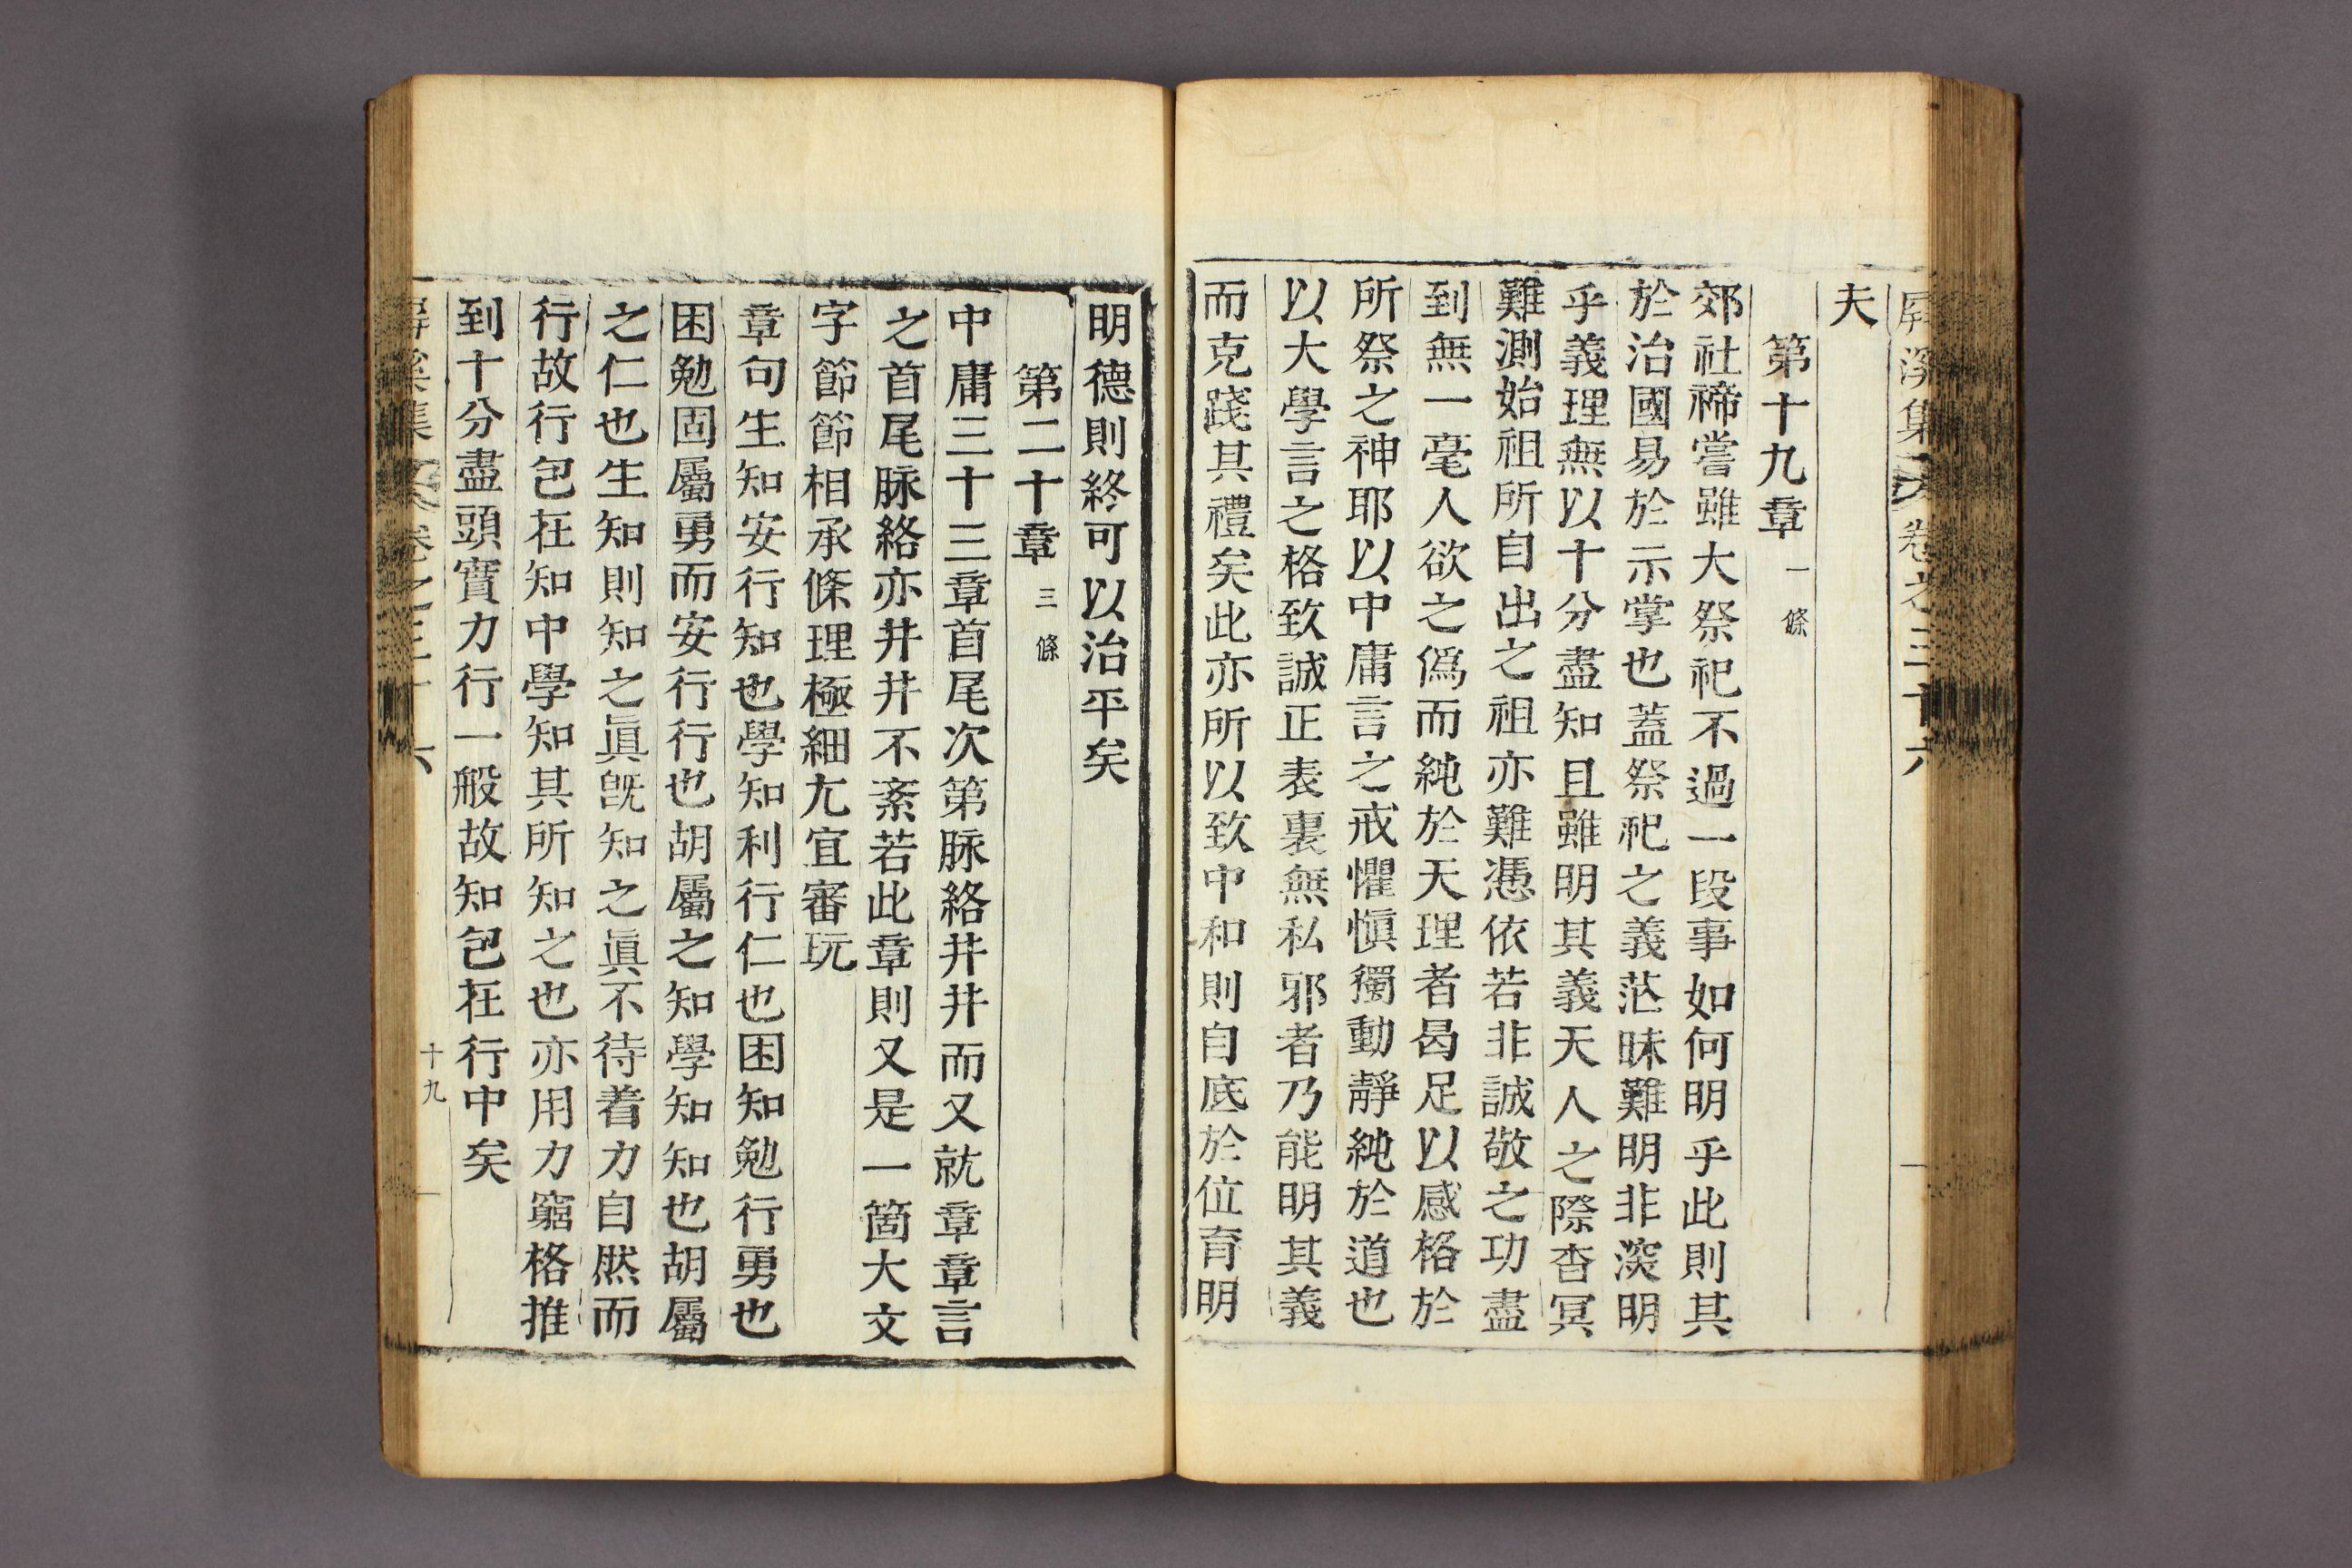 屛溪集 卷之三十六
夫
第十九章 一條
郊社禘嘗雖大祭祀不過一段事如何明乎此則其
於治國易於示掌也蓋祭祀之義茫昧難明非深明
乎義理無以十分盡知且雖明其義天人之際杳冥
難測始祖所自出之祖亦難憑依若非誠敬之功盡
到無一毫人欲之僞而純於天理者曷足以感格於
所祭之神耶以中庸言之戒懼愼獨動靜純於道也
以大學言之格致誠正表裏無私邪者乃能明其義
而克踐其禮矣此亦所以致中和則自底於位育明
明德則終可以治平矣
第二十章 三條
中庸三十三章首尾次第脉絡井井而又就章章言
之首尾脉絡亦井井不紊若此章則又是一箇大文
字節節相承條理極細尤宜審玩
章句生知安行知也學知利行仁也困知勉行勇也
困勉固屬勇而安行行也胡屬之知學知知也胡屬
之仁也生知則知之眞旣知之眞不待着力自然而
行故行包在知中學知其所知之也亦用力窮格推
到十分盡頭實力行一般故知包在行中矣
屛溪集 卷之三十六 十九